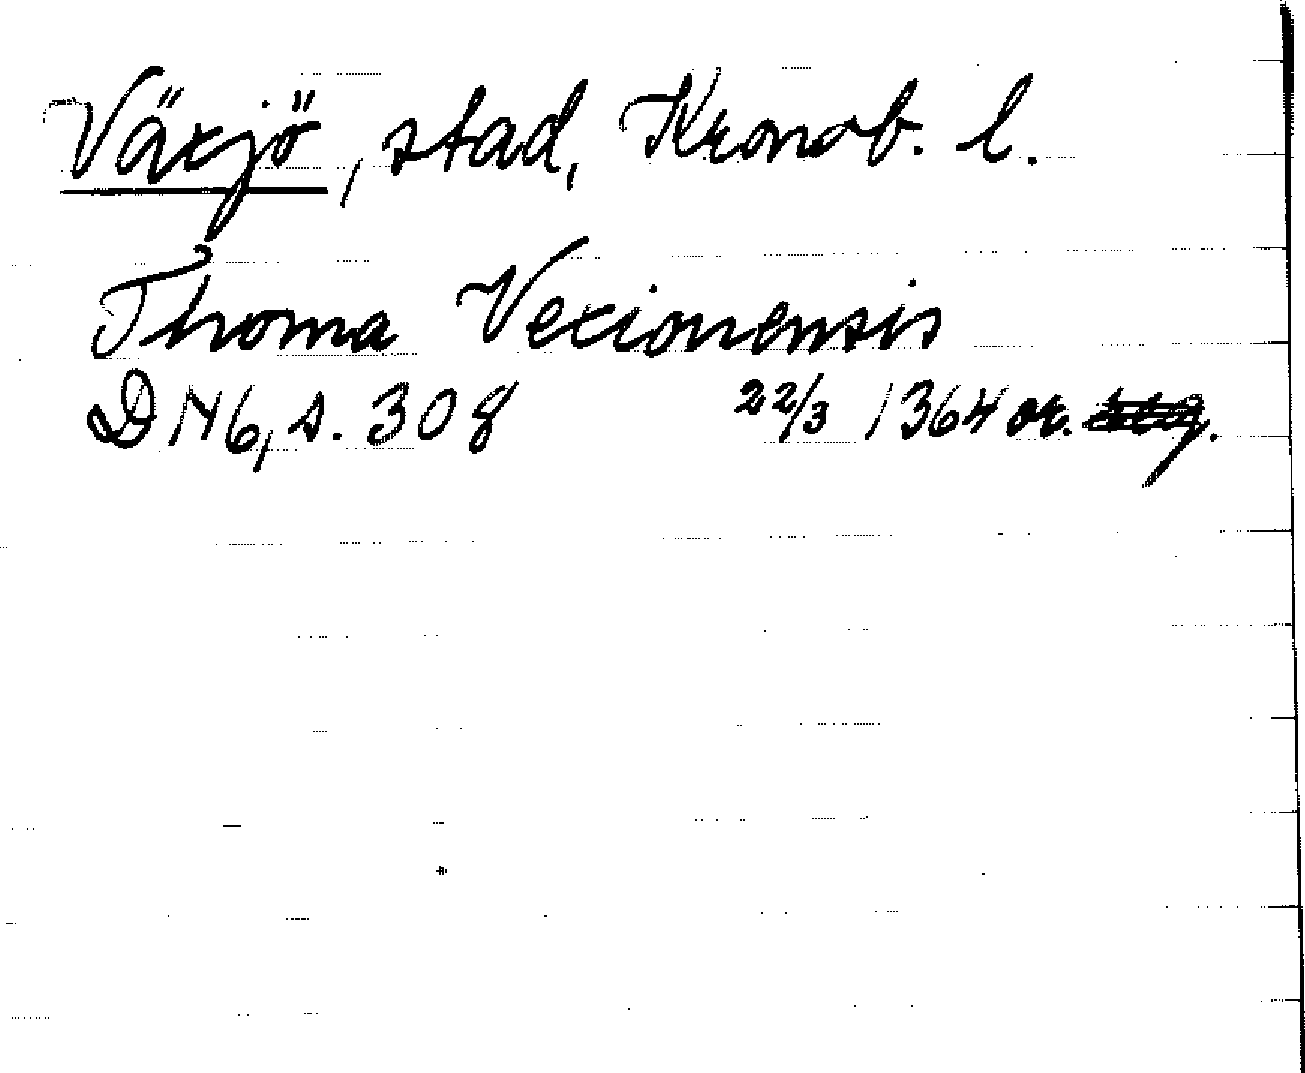 Växjö, stad, Kronob. l.
Thoma Vexionensis
DN6, s. 308 22/3 1364 or.